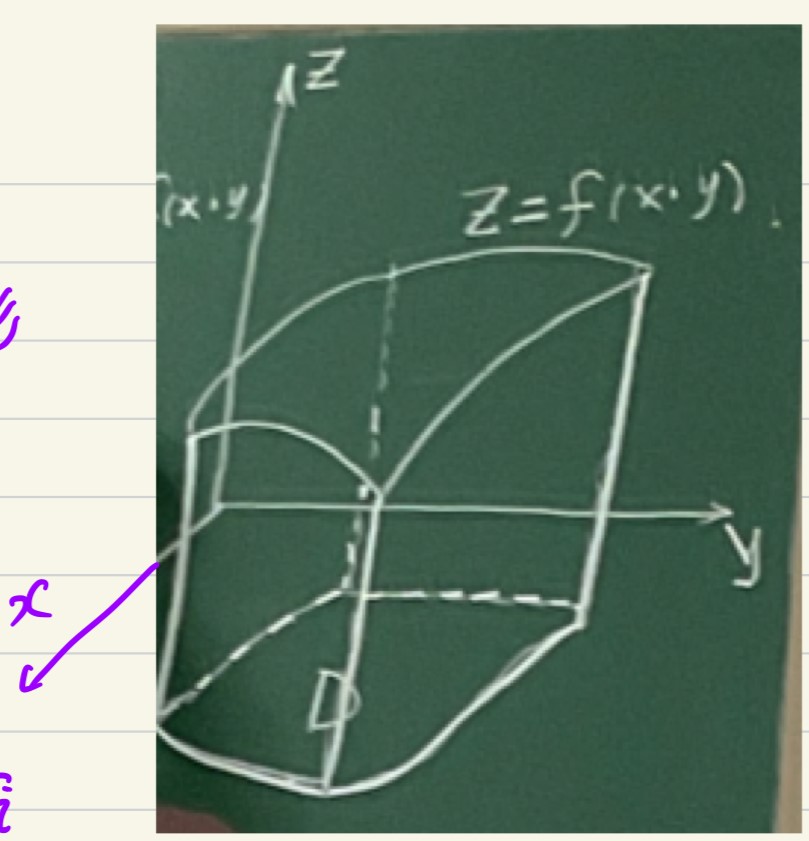 Z
(x·y)
Z=f(x·y).
y
x
D